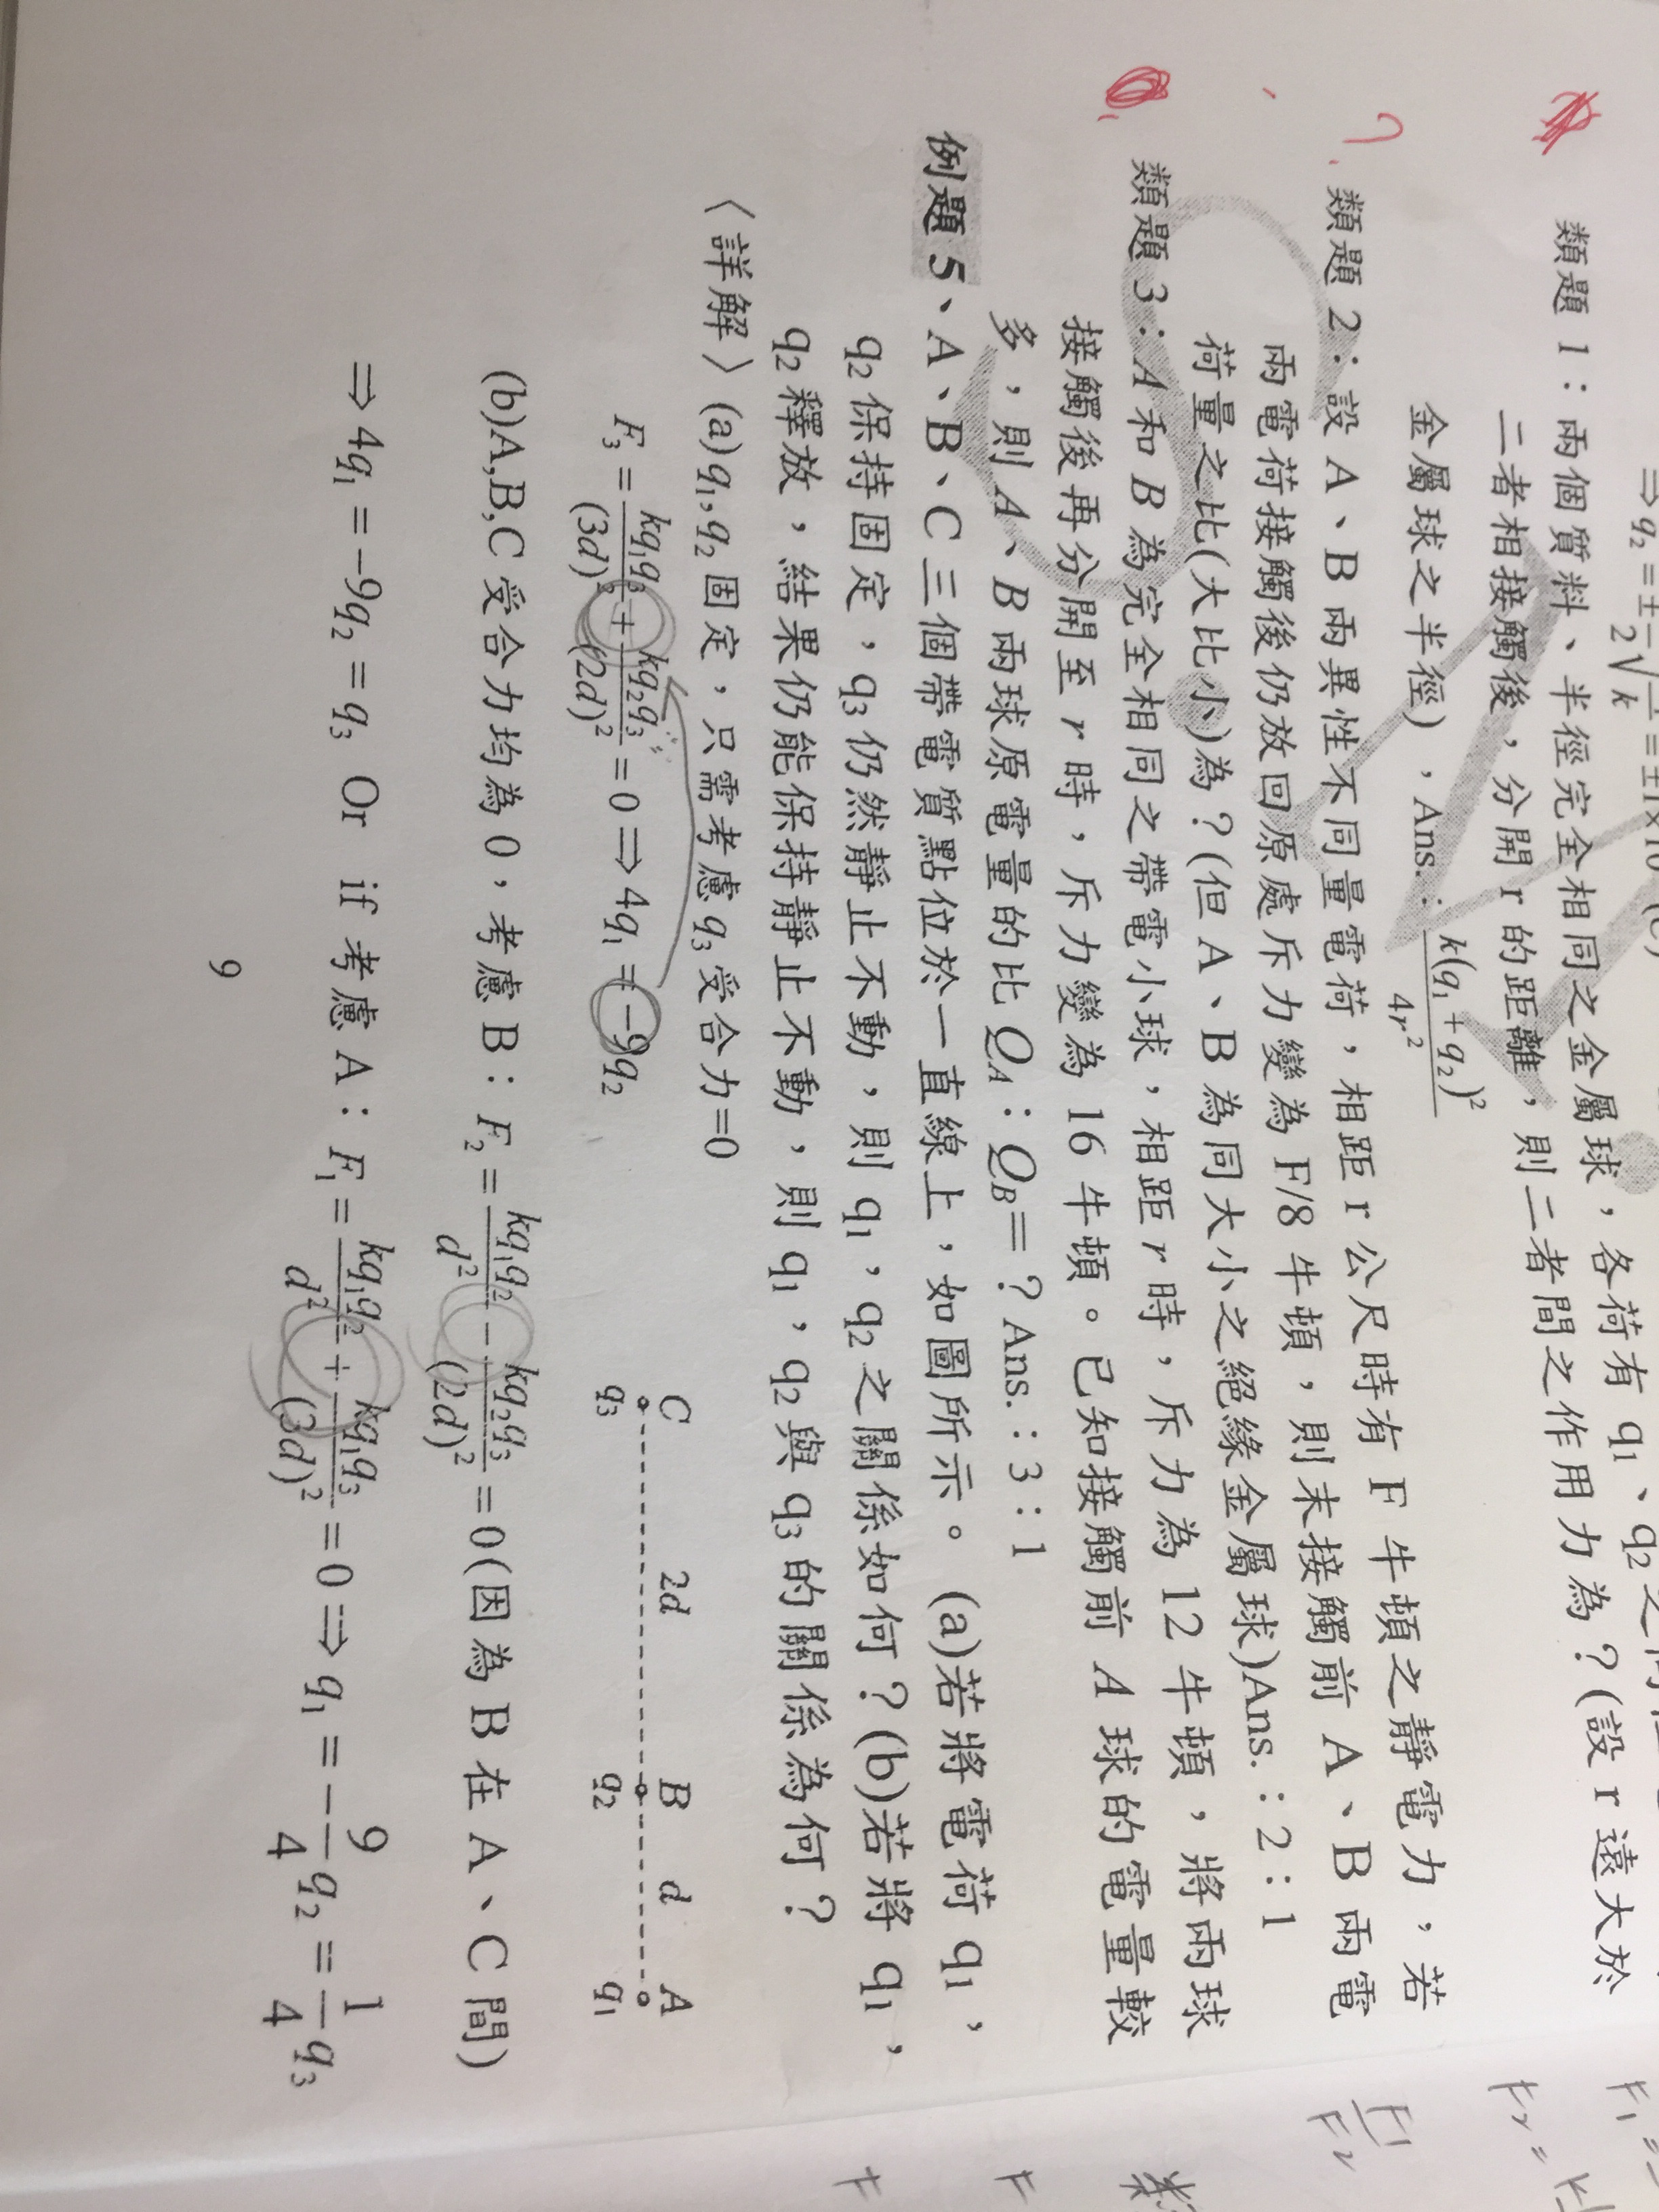 ⇒ q₂ = ±
類題 1：兩個質料、半徑完全相同之金屬球，各荷有 q₁、q₂
二者相接觸後，分開 r 的距離，則二者間之作用力為？(設 r 遠大於
金屬球之半徑)，Ans.：k(q₁+q₂)²/4r²
?
類題 2：設 A、B 兩異性不同量電荷，相距 r 公尺時有 F 牛頓之靜電力，若
兩電荷接觸後仍放回原處斥力變為 F/8 牛頓，則未接觸前 A、B 兩電
荷量之比(大比小)為？(但 A、B 為同大小之絕緣金屬球)Ans.：2：1
類題 3：A 和 B 為完全相同之帶電小球，相距 r 時，斥力為 12 牛頓，將兩球
接觸後再分開至 r 時，斥力變為 16 牛頓。已知接觸前 A 球的電量較
多，則 A、B 兩球原電量的比 Q_A：Q_B＝？Ans.：3：1
例題 5、A、B、C 三個帶電質點位於一直線上，如圖所示。(a)若將電荷 q₁，
q₂ 保持固定，q₃ 仍然靜止不動，則 q₁，q₂ 之關係如何？(b)若將 q₁，
q₂ 釋放，結果仍能保持靜止不動，則 q₁，q₂ 與 q₃ 的關係為何？
〈詳解〉(a)q₁,q₂ 固定，只需考慮 q₃ 受合力=0
C 2d B d A
q₃ q₂ q₁
F₃ = kq₁q₃/(3d)² + kq₂q₃/(2d)² = 0 ⇒ 4q₁ = −9q₂
(b)A,B,C 受合力均為 0，考慮 B：F₂ = kq₁q₂/d² − kq₂q₃/(2d)² = 0(因為 B 在 A、C 間)
⇒ 4q₁ = −9q₂ = q₃ Or if 考慮 A：F₁ = kq₁q₂/d² + kq₁q₃/(3d)² = 0 ⇒ q₁ = −9/4 q₂ = 1/4 q₃
9